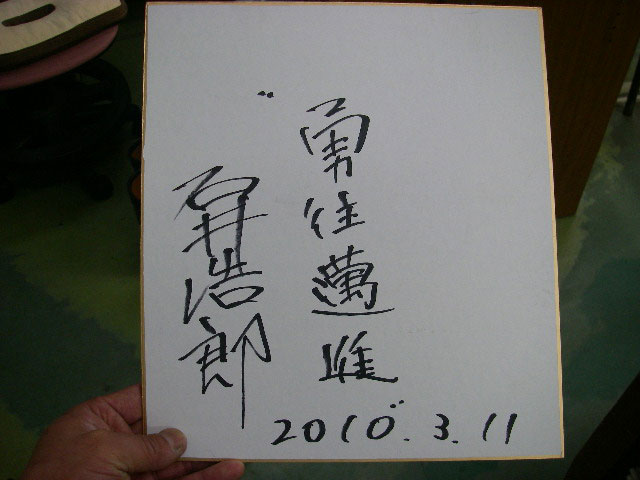 "勇往邁進"
石井浩郎
2010.3.11